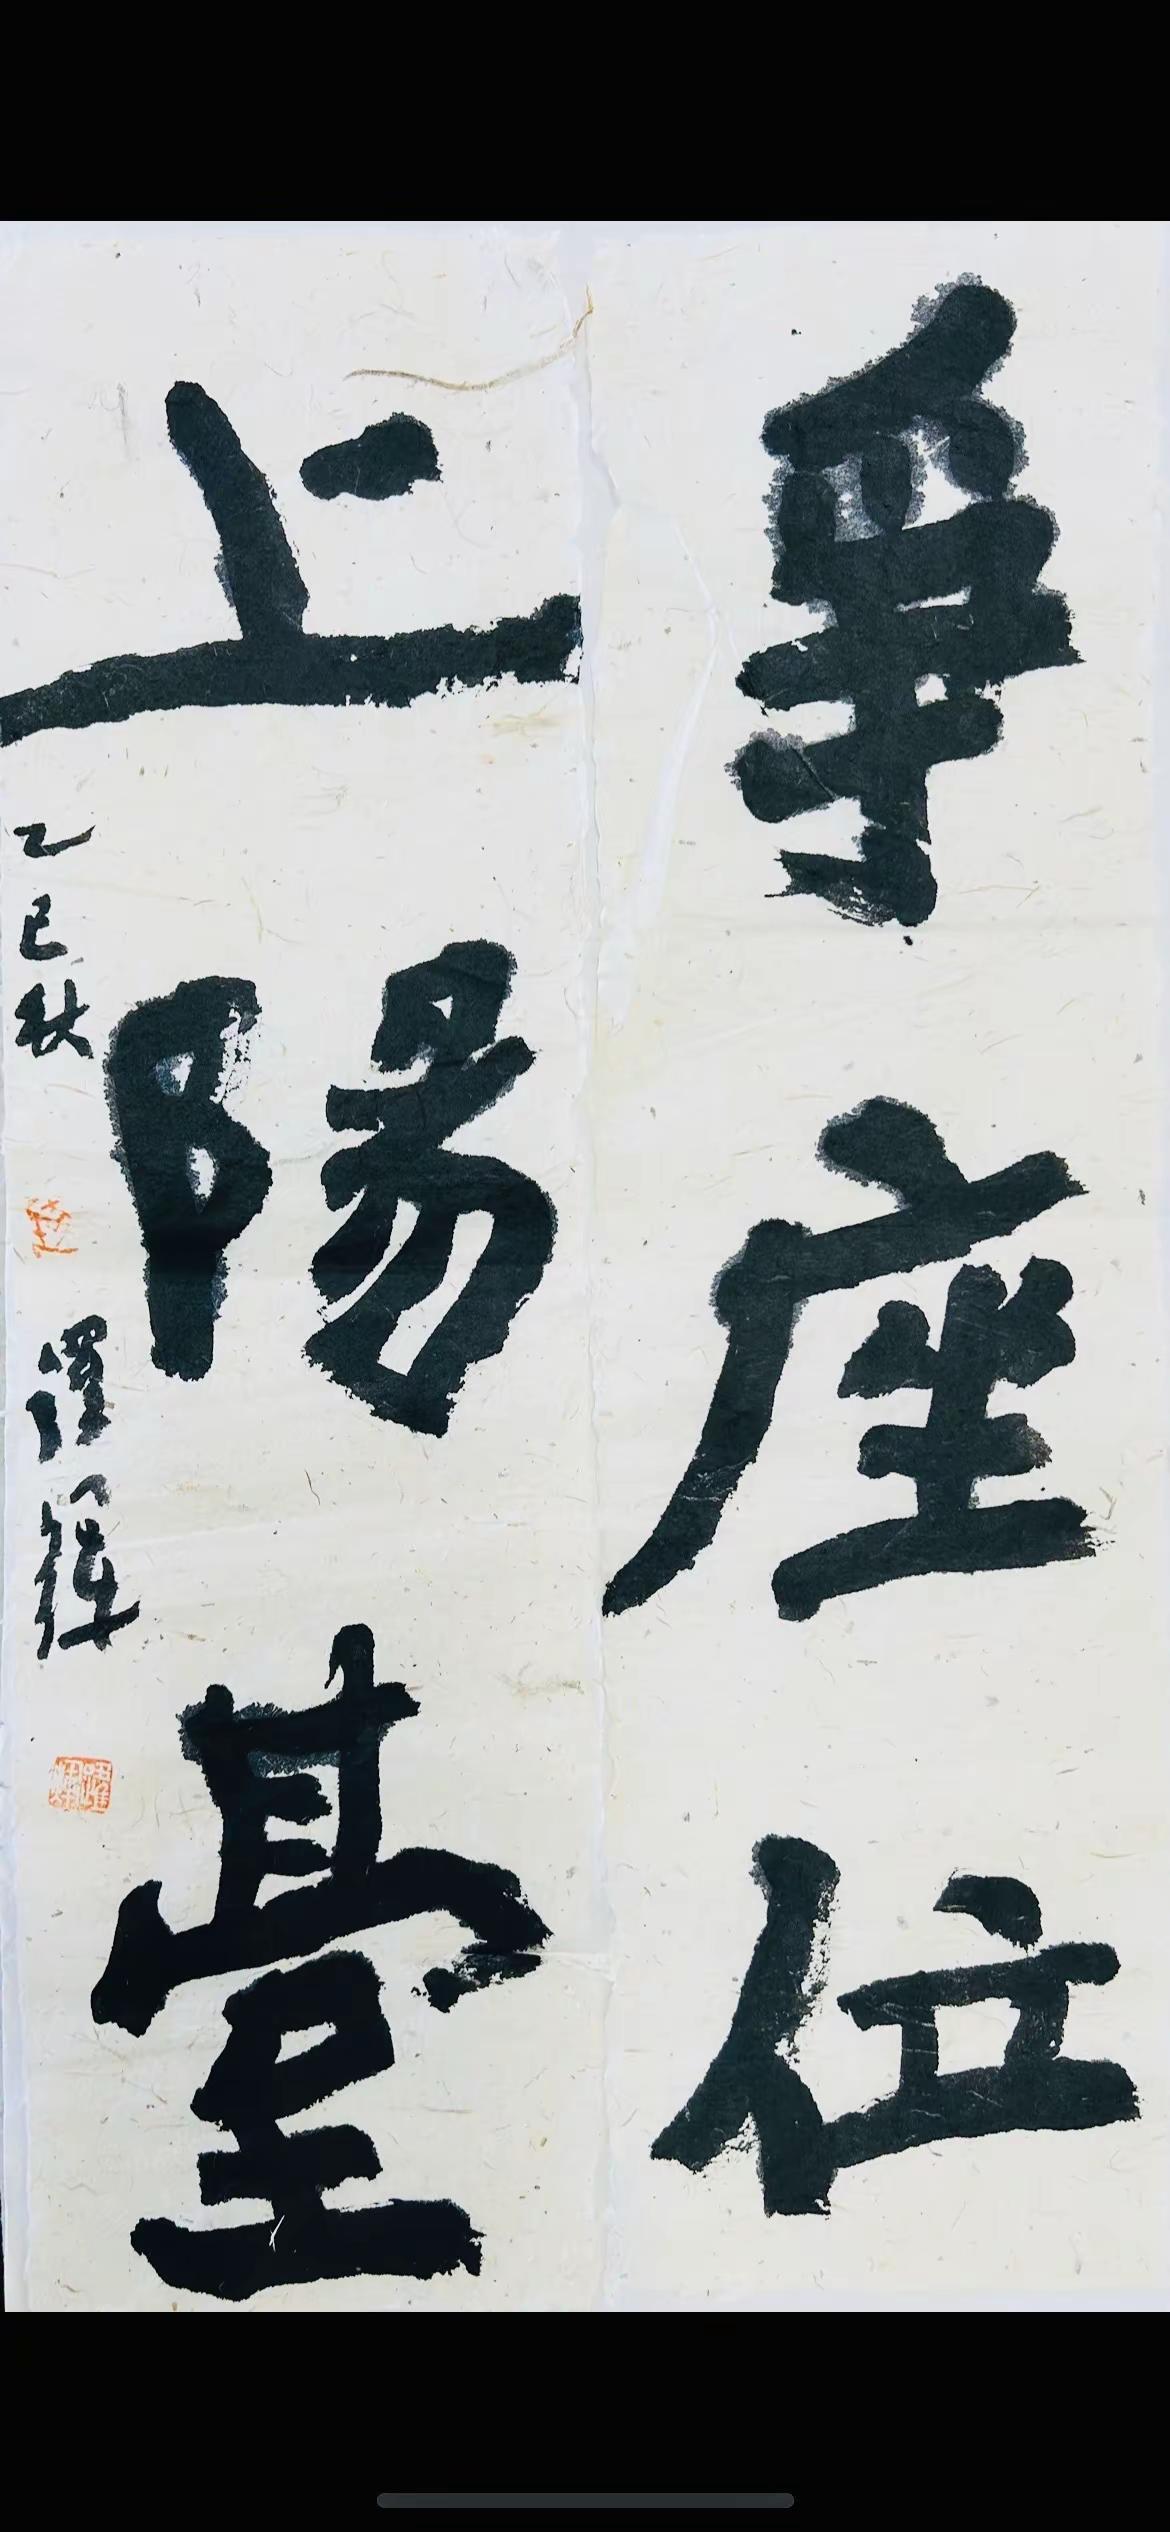 爭座位
上陽臺
乙巳秋